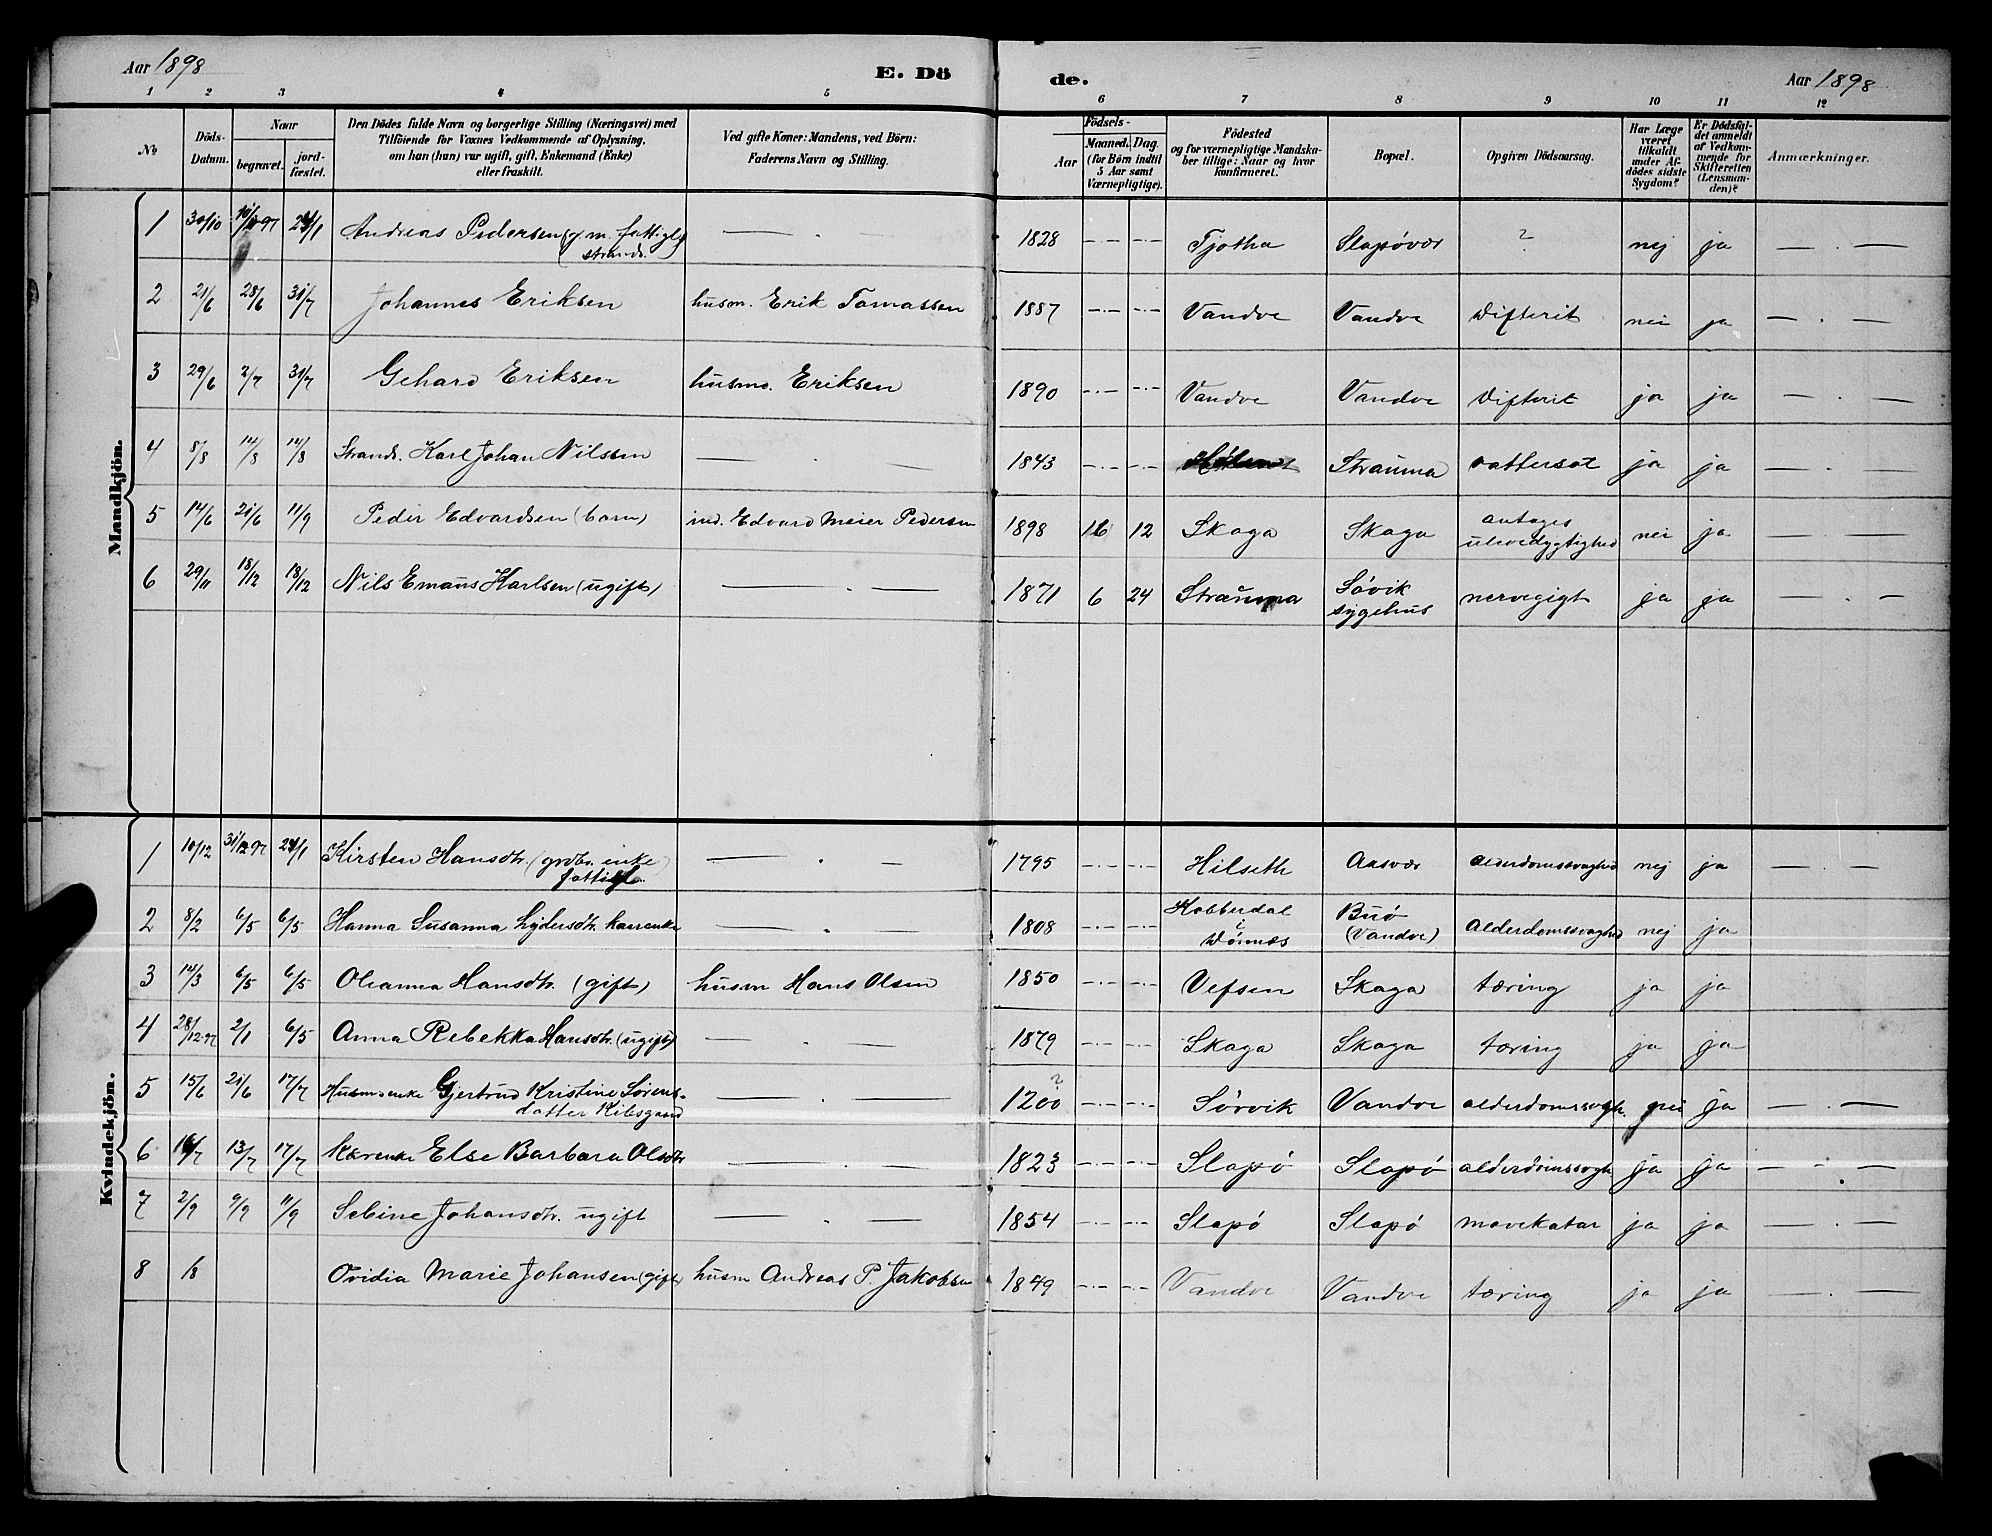 Aar 1898 E. Dö de. Aar 1898
1 2 3 4 5 6 7 8 9 10 11 12
No. Döds-Datum. Naar begravet. jord-fæstet. Den Dödes fulde Navn og borgerlige Stilling (Næringsvei) med Tilföiende for Voxnes Vedkommende af Oplysning, om han (hun) var ugift, gift, Enkemand (Enke) eller fraskilt. Ved gifte Koner: Mandens, ved Börn: Faderens Navn og Stilling. Födsels- Aar Maaned. Dag. (for Börn indtil 5 Aar samt Værnepligtige). Födested og for værnepligtige Mandska-ber tillige: Naar og hvor konfirmeret. Bopæl. Opgiven Dödsaarsag. Har Læge været tilkaldt under Af-dödes sidste Sygdom? Er Dödsfal-det anmeldt af Vedkom-mende for Skifteretten (Lensman-den)? Anmærkninger.
Mandkjön.
1 30/10 97 Andreas Pedersen (g m. fattigl. strands. — . — 1828 Tjotha Slapövær ? nej ja — . —
2 21/6 28/6 31/7 Johannes Eriksen husm. Erik Tomassen 1887 Vandve Vandve Difterit nei ja — . —
3 29/6 2/7 31/7 Gehard Eriksen husm. Eriksen 1890 Vandve Vandve Difterit ja ja — . —
4 8/8 14/8 14/8 Strands. Karl Johan Nilssen — . — 1843 Strauma vattersot ja ja — .
5 14/6 21/6 11/9 Peder Edvardsen (barn) ind. Edvard Meier Pedersen 1898 12 Skaga Skaga antages ulevedygtighed nei ja — . —
6 29/11 18/12 18/12 Nils Emaus Karlsen (ugift) — . — 1871 6 24 Strauma Sövik sygehus nervegigt ja ja — . —
Kvindekjön.
1 10/12 31/12 97 Kirsten Hansdtr. (grdbr. enke) fattigl. — . — 1795 Hilseth Aasvær alderdomssvaghed nej ja — . —
2 8/2 6/5 6/5 Hanna Susanna Lydersdtr. kaarenke — . — 1808 i Dönnes Buö (Vandve) alderdomssvaghed nej ja
3 14/3 6/5 6/5 Oleanna Hansdtr. (gift) husm Hans Olsen 1850 Vefsen Skaga tæring ja ja
4 28/12-97 2/1 6/5 Anna Rebekka Hansdtr. (ugift) — . — 1879 Skaga Skaga tæring ja ja
5 15/6 21/6 17/7 Husmsenke Gjertrud Kristine Sörens-datter Kibsgaard — . — ? Sörvik Vandve alderdomssvagh. ja — . —
6 13/7 17/7 Kårenke Else Barbara Olsdtr — . — 1823 Slapö Slapö alderdomssvagh ja ja — . —
7 2/9 9/9 11/9 Sebine Johansdtr. ugift — . — 1854 Slapö Slapö mavekatar ja ja — . —
8 /8 Ovidia Marie Johansen (gift) husm Andreas P. Jakobsen 1849 Vandve Vandve tæring ja ja — . —